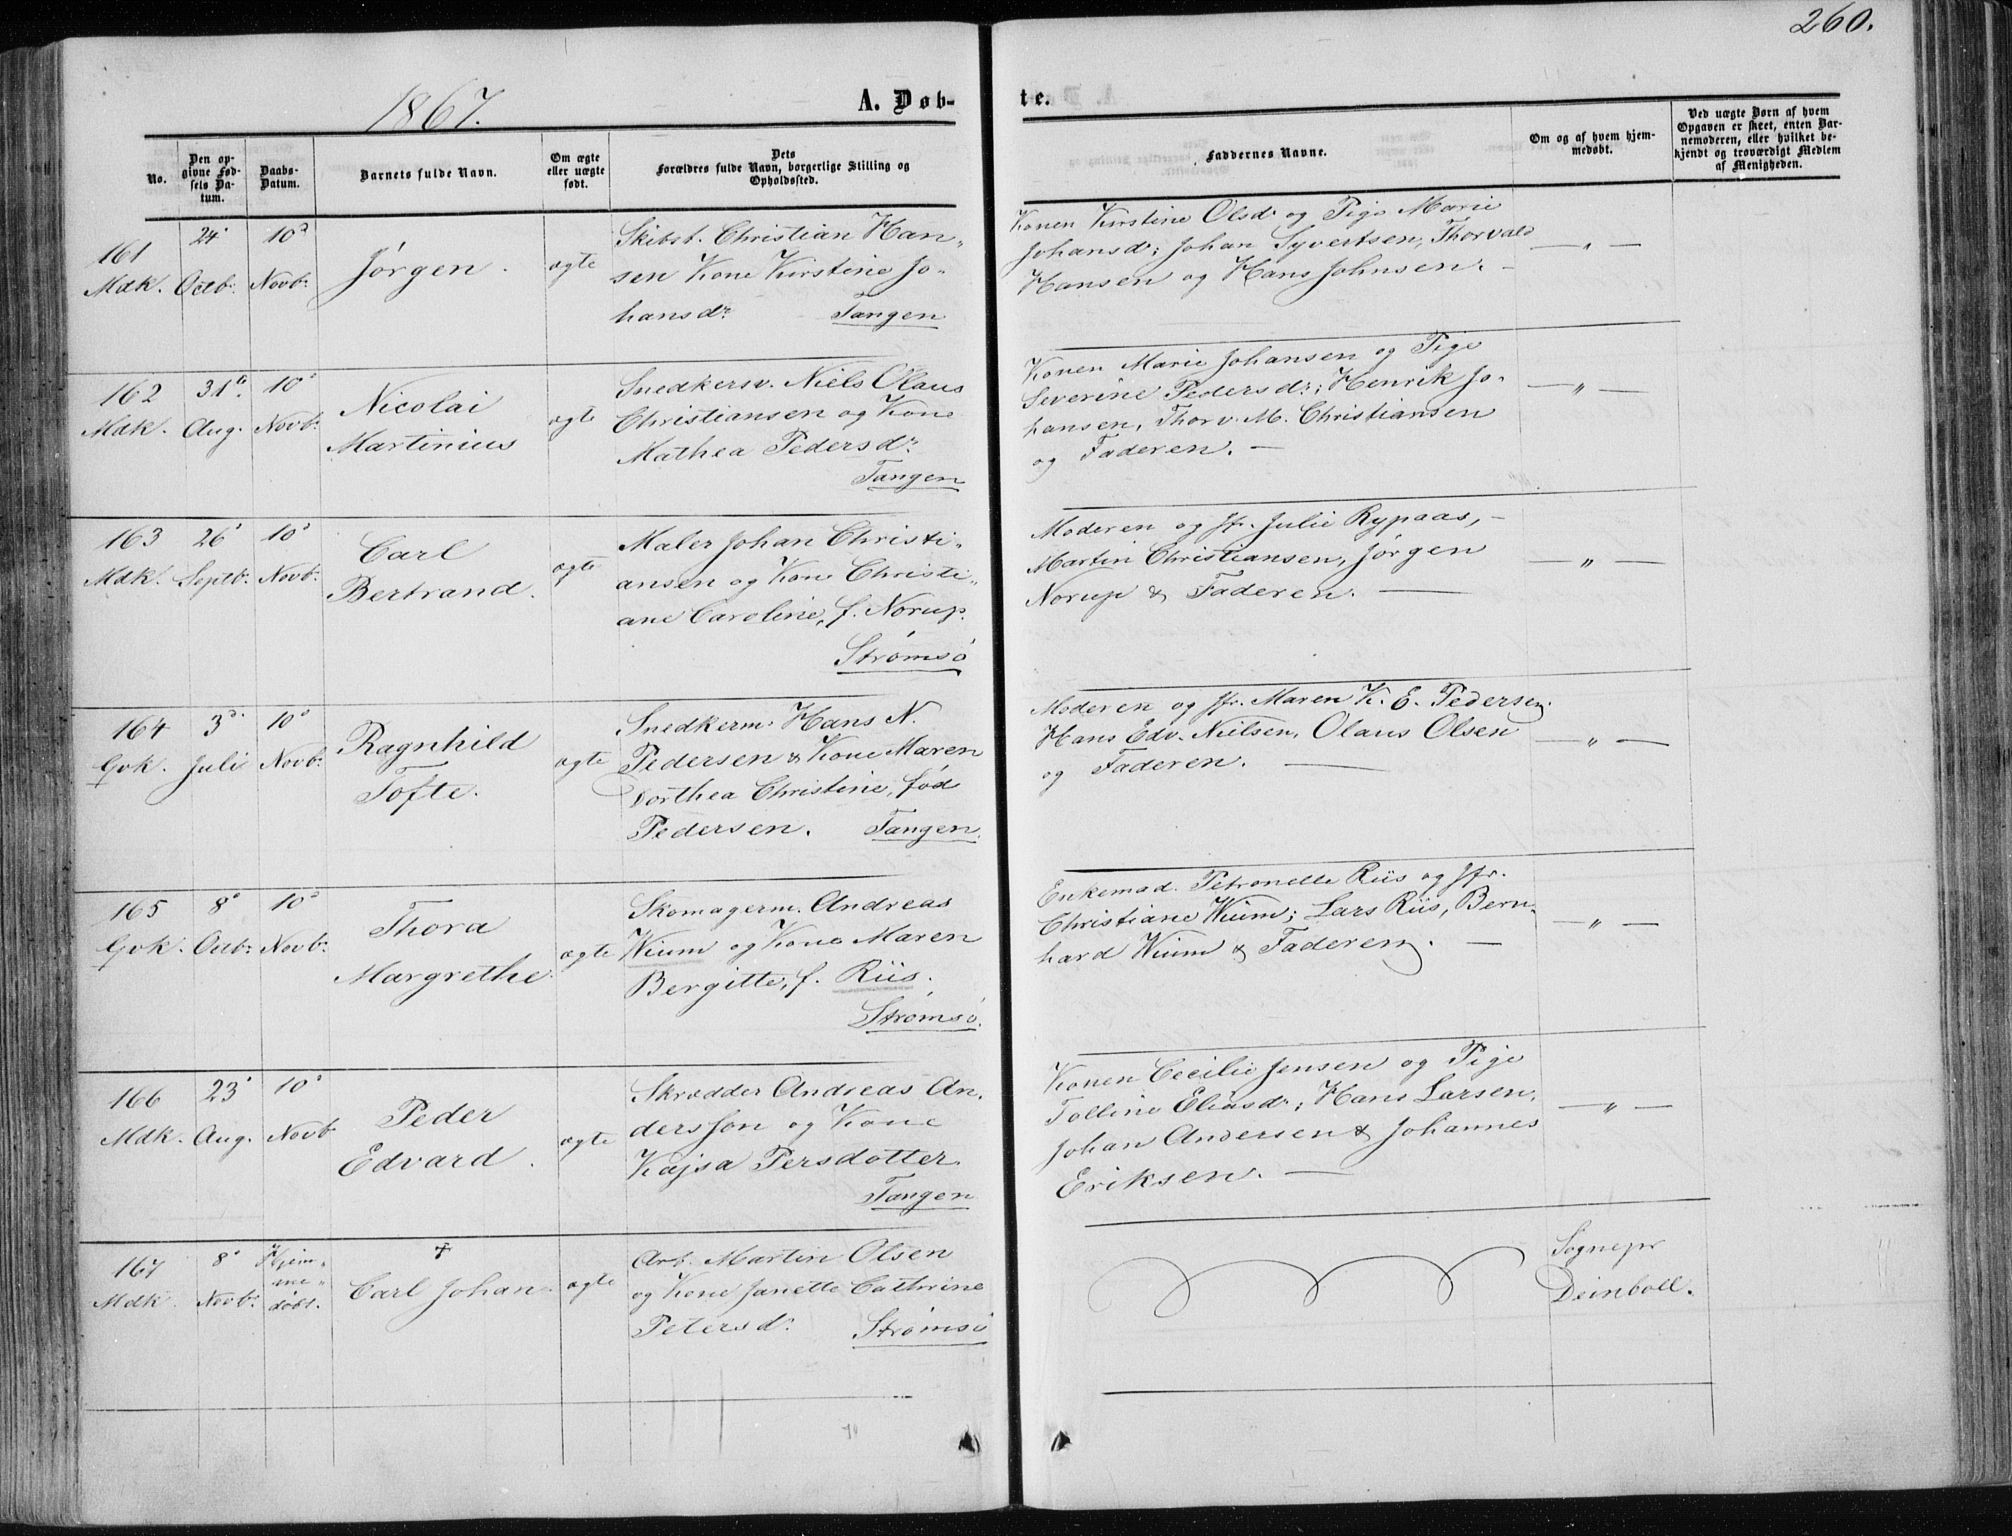 260.
1867.
A. Døb-
te.
No.
Den op-
givne Fød-
sels Da-
tum.
Daabs-
Datum.
Barnets fulde Navn.
Om ægte
eller uægte
født.
Dets
Forældres fulde Navn, borgerlige Stilling og
Opholdssted.
Faddernes Navne.
Om og af hvem hjem-
medøbt.
Ved uægte Børn af hvem
Opgaven er skeet, enten Bar-
nemoderen, eller hvilket be-
kjendt og troværdigt Medlem
af Menigheden.
161
Mdk.
24
Octbr.
10
Novbr.
Jørgen.
ægte
Skibst. Christian Han-
sen Kone Kirstine Jo-
hansdr.
Tangen
Konen Kirstine Olsdr. og Pige Marie
Johansd; Johan Syvertsen, Thorvald
Hansen og Hans Johnsen. —
— „ —
162
Mdk.
31
Aug.
10
Novbr.
Nicolai
Martinius
ægte
Snedkersv. Niels Olaus
Christiansen og Kone
Mathea Pedersdr.
Tangen
Konen Marie Johansen og Pige
Severine Pedersdr; Henrik Jo-
hansen, Thorv. M. Christiansen
og Faderen. —
— „ —
163
Mdk.
26
Septbr.
10
Novbr.
Carl
Bertrand.
ægte
Maler Johan Christi-
ansen og Kone Christi-
ane Caroline, f. Norup.
Strømsø
Moderen og Jfr. Julie Rypaas, —
Martin Christiansen, Jørgen
Norup & Faderen. —
— „ —
164
Gvk.
3
Juli
10
Novbr.
Ragnhild
Tofte.
ægte
Snedkerm. Hans N.
Pedersen & Kone Maren
Dorthea Christine, fød
Pedersen.
Tangen.
Moderen og Jfr. Maren K. E. Pedersen.
Hans Edv. Nielsen, Olaus Olsen
og Faderen. —
— „ —
165
Gvk.
8
Octbr.
10
Novbr.
Thora
Margrethe.
ægte
Skomagerm. Andreas
Wium og Kone Maren
Bergitte, f. Riis.
Strømsø.
Enkemad. Petronelle Riis og Jfr.
Christiane Wium; Lars Riis, Bern-
hard Wium & Faderen. —
— „ —
166
Mdk.
23
Aug.
10
Novb
Peder
Edvard.
ægte
Skrædder Andreas An-
dersson og Kone
Kajsa Persdotter.
Tangen
Konen Cecilie Jensen og Pige
Tolline Eliasdr; Hans Larsen,
Johan Andersen & Johannes
Eriksen. —
— „ —
167
Mdk.
8
Novbr.
Hjem-
me-
døbt.
†
Carl Johan
ægte
Arb. Martin Olsen
og Kone Janette Cathrine
Petersd.
Strømsø
Sognepr
Deinboll.